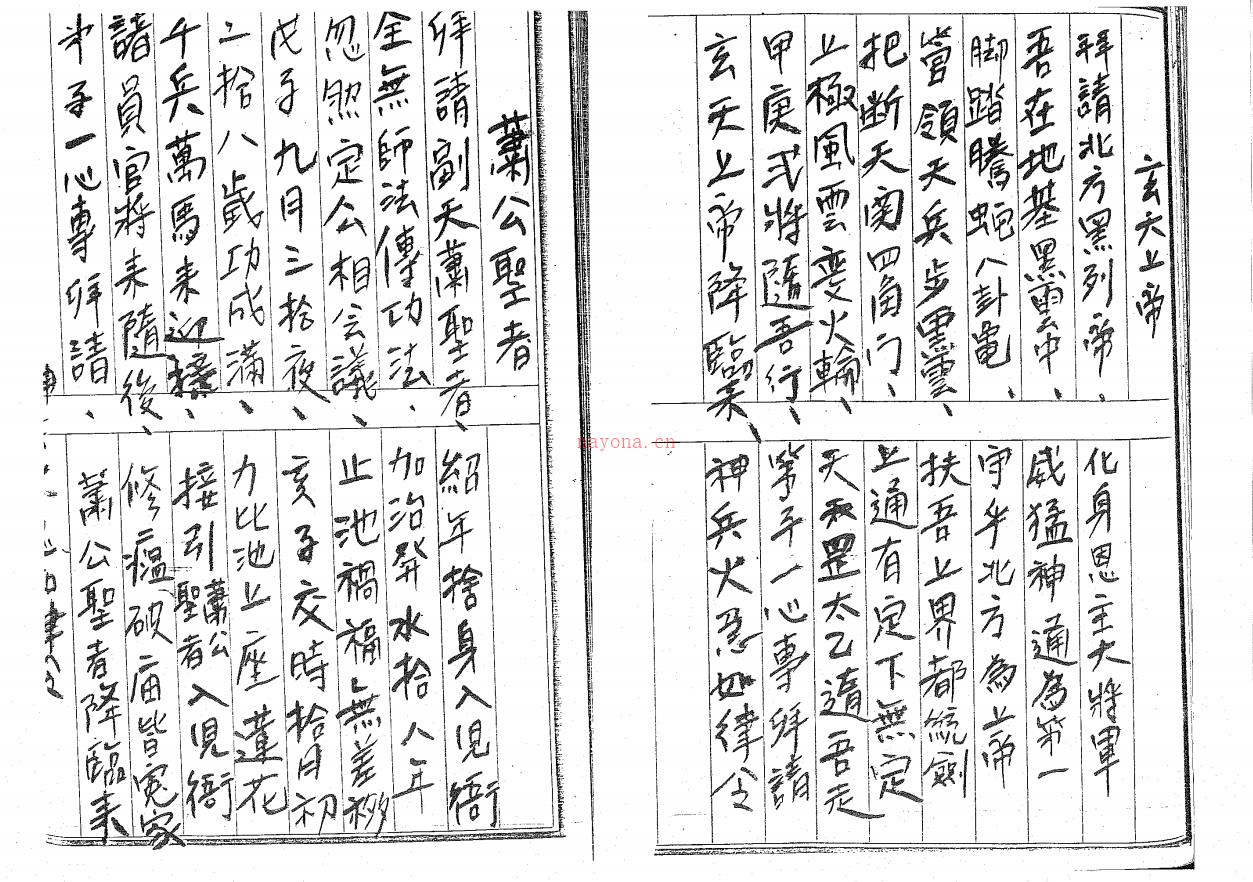 玄天上帝
拜請北方黑列帝。化身恩主大將軍
吾在地基黑雲中 威猛神通為第一
脚踏騰蛇八卦黾、守牛北方為上帝
管領天兵步黑雲、扶吾上界都統劍
把断天関四角门、上通有定下無定
上極風雲变火輪、天罡太乙遀吾走
甲庚弍將隨吾行、第子一心專拜請
玄天上帝降臨來、神兵火急如律令
蕭公聖者
拜請副天蕭聖者、紹年捨身入児衙
全無師法傳功法、加治昇水拾八年
忽然定公相会議、止池禍福無差移
戊子九月三拾夜、亥子交時拾月初
二拾八歲功成滿、力比池上座蓮花
千兵萬馬來迎接、接引蕭公聖者入児衙
諸員官將來隨後、修瘟破庙皆冤家
弟子一心專拜請、蕭公聖者降臨來